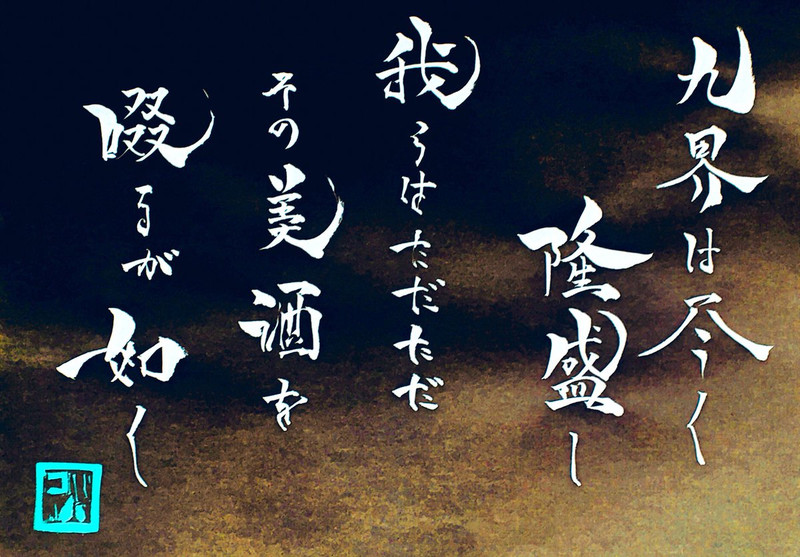 九界は尽く
隆盛し
我らはただただ
その美酒を
啜るが如く